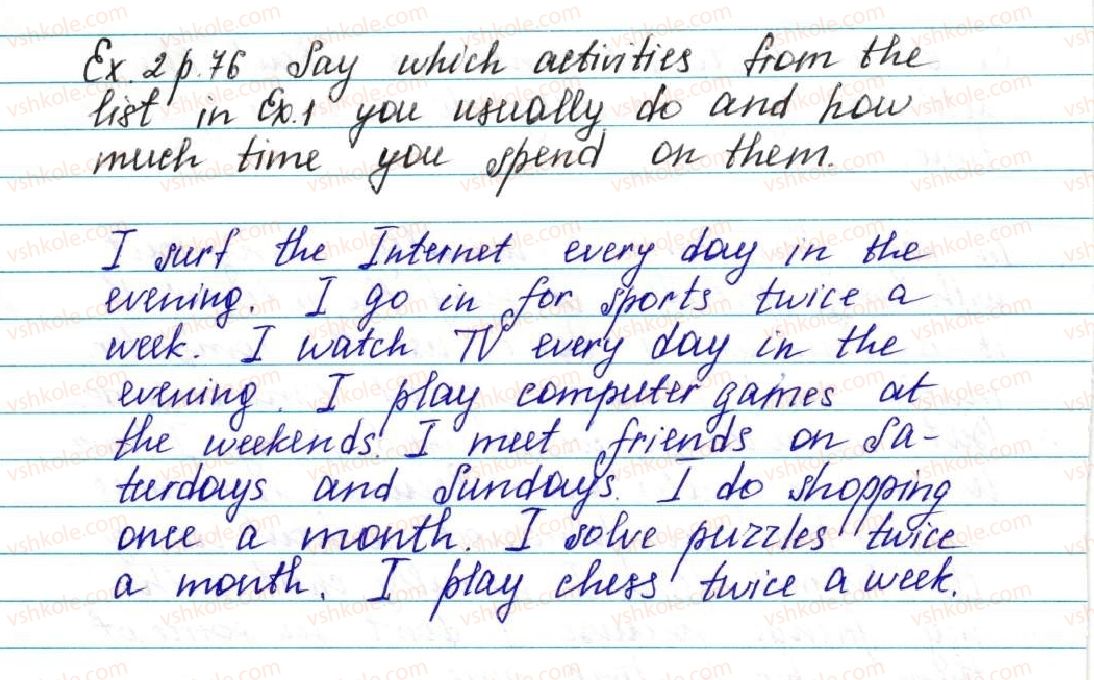 Ex. 2 p. 76 Say which activities from the
list in Ex. 1 you usually do and how
much time you spend on them.
I surf the Internet every day in the
evening. I go in for sports twice a
week. I watch TV every day in the
evening. I play computer games at
the weekends. I meet friends on Sa-
turdays and Sundays. I do shopping
once a month. I solve puzzles twice
a month. I play chess twice a week.